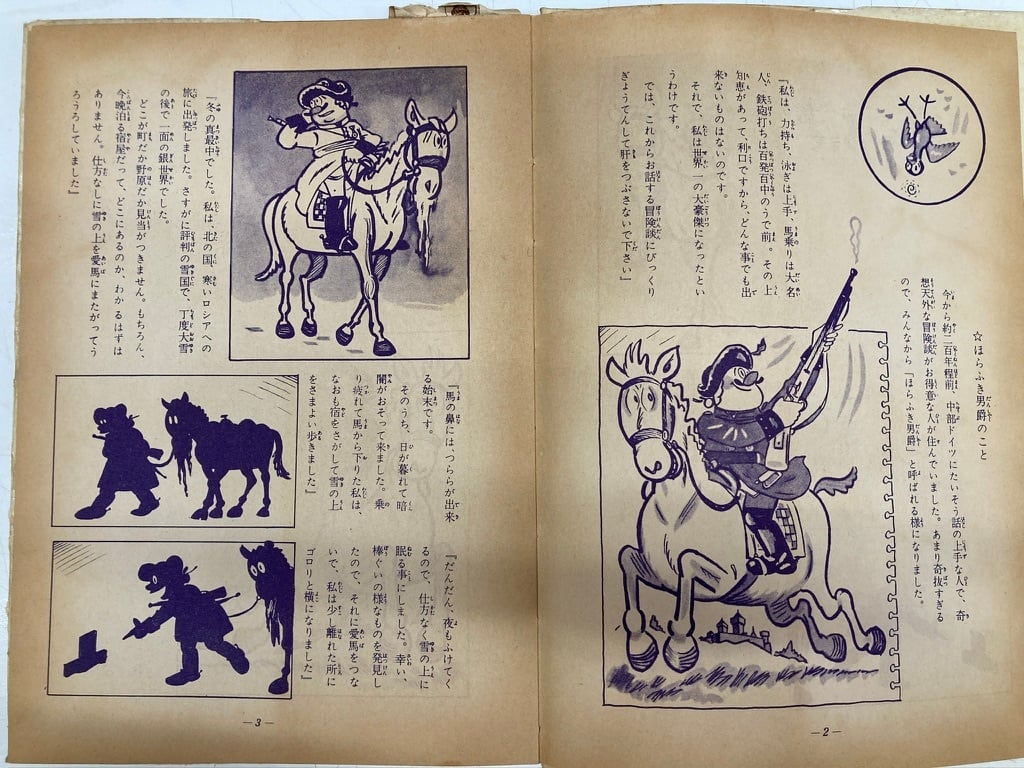 ☆ほらふき男爵のこと
今から約二百年程前、中部ドイツにたいそう話の上手な人で、奇
想天外な冒険談がお得意な人が住んでいました。あまり奇抜すぎる
ので、みんなから「ほらふき男爵」と呼ばれる様になりました。
『私は、力持ち、泳ぎは上手、馬乗りは大名
人、鉄砲打ちは百発百中のうで前。その上
知恵があって、利口ですから、どんな事でも出
来ないものはないのです。
それで、私は世界一の大豪傑になったとい
うわけです。
では、これからお話する冒険談にびっくり
ぎょうてんして肝をつぶさないで下さい』
—2—
『冬の真最中でした。私は、北の国、寒いロシアへの
旅に出発しました。さすがに評判の雪国で、丁度大雪
の後で一面の銀世界でした。
どこが町だか野原だか見当がつきません。もちろん、
今晩泊る宿屋だって、どこにあるのか、わかるはずは
ありません。仕方なしに雪の上を愛馬にまたがってう
ろうろしていました』
『馬の鼻には、つららが出来
る始末です。
そのうち、日が暮れて暗
闇がおそって来ました。乗
り疲れて馬から下りた私は、
なおも宿をさがして雪の上
をさまよい歩きました』
『だんだん、夜もふけてく
るので、仕方なく雪の上に
眠る事にしました。幸い、
棒ぐいの様なものを発見し
たので、それに愛馬をつな
いで、私は少し離れた所に
ゴロリと横になりました』
—3—